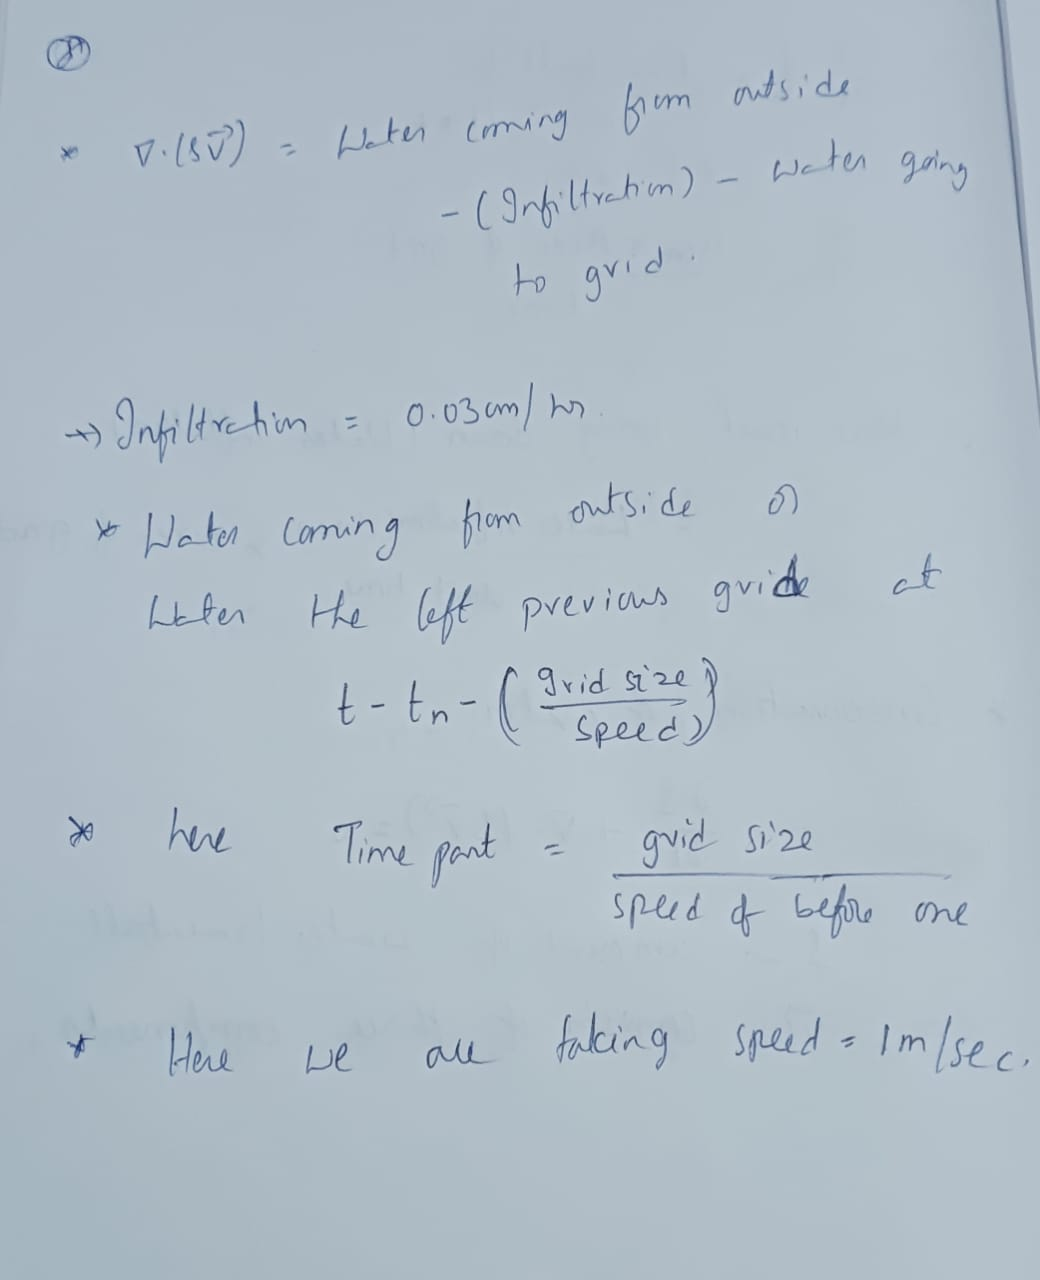 * ∇·(SV⃗) = Water coming from outside
- (Infiltration) - Water going
to grid.
→ Infiltration = 0.03 cm/hr.
* Water coming from outside
Water the left previous gride at
t - tn - (grid size / speed)
* here Time part = grid size / speed of before one
* Here we are taking speed = 1m/sec.